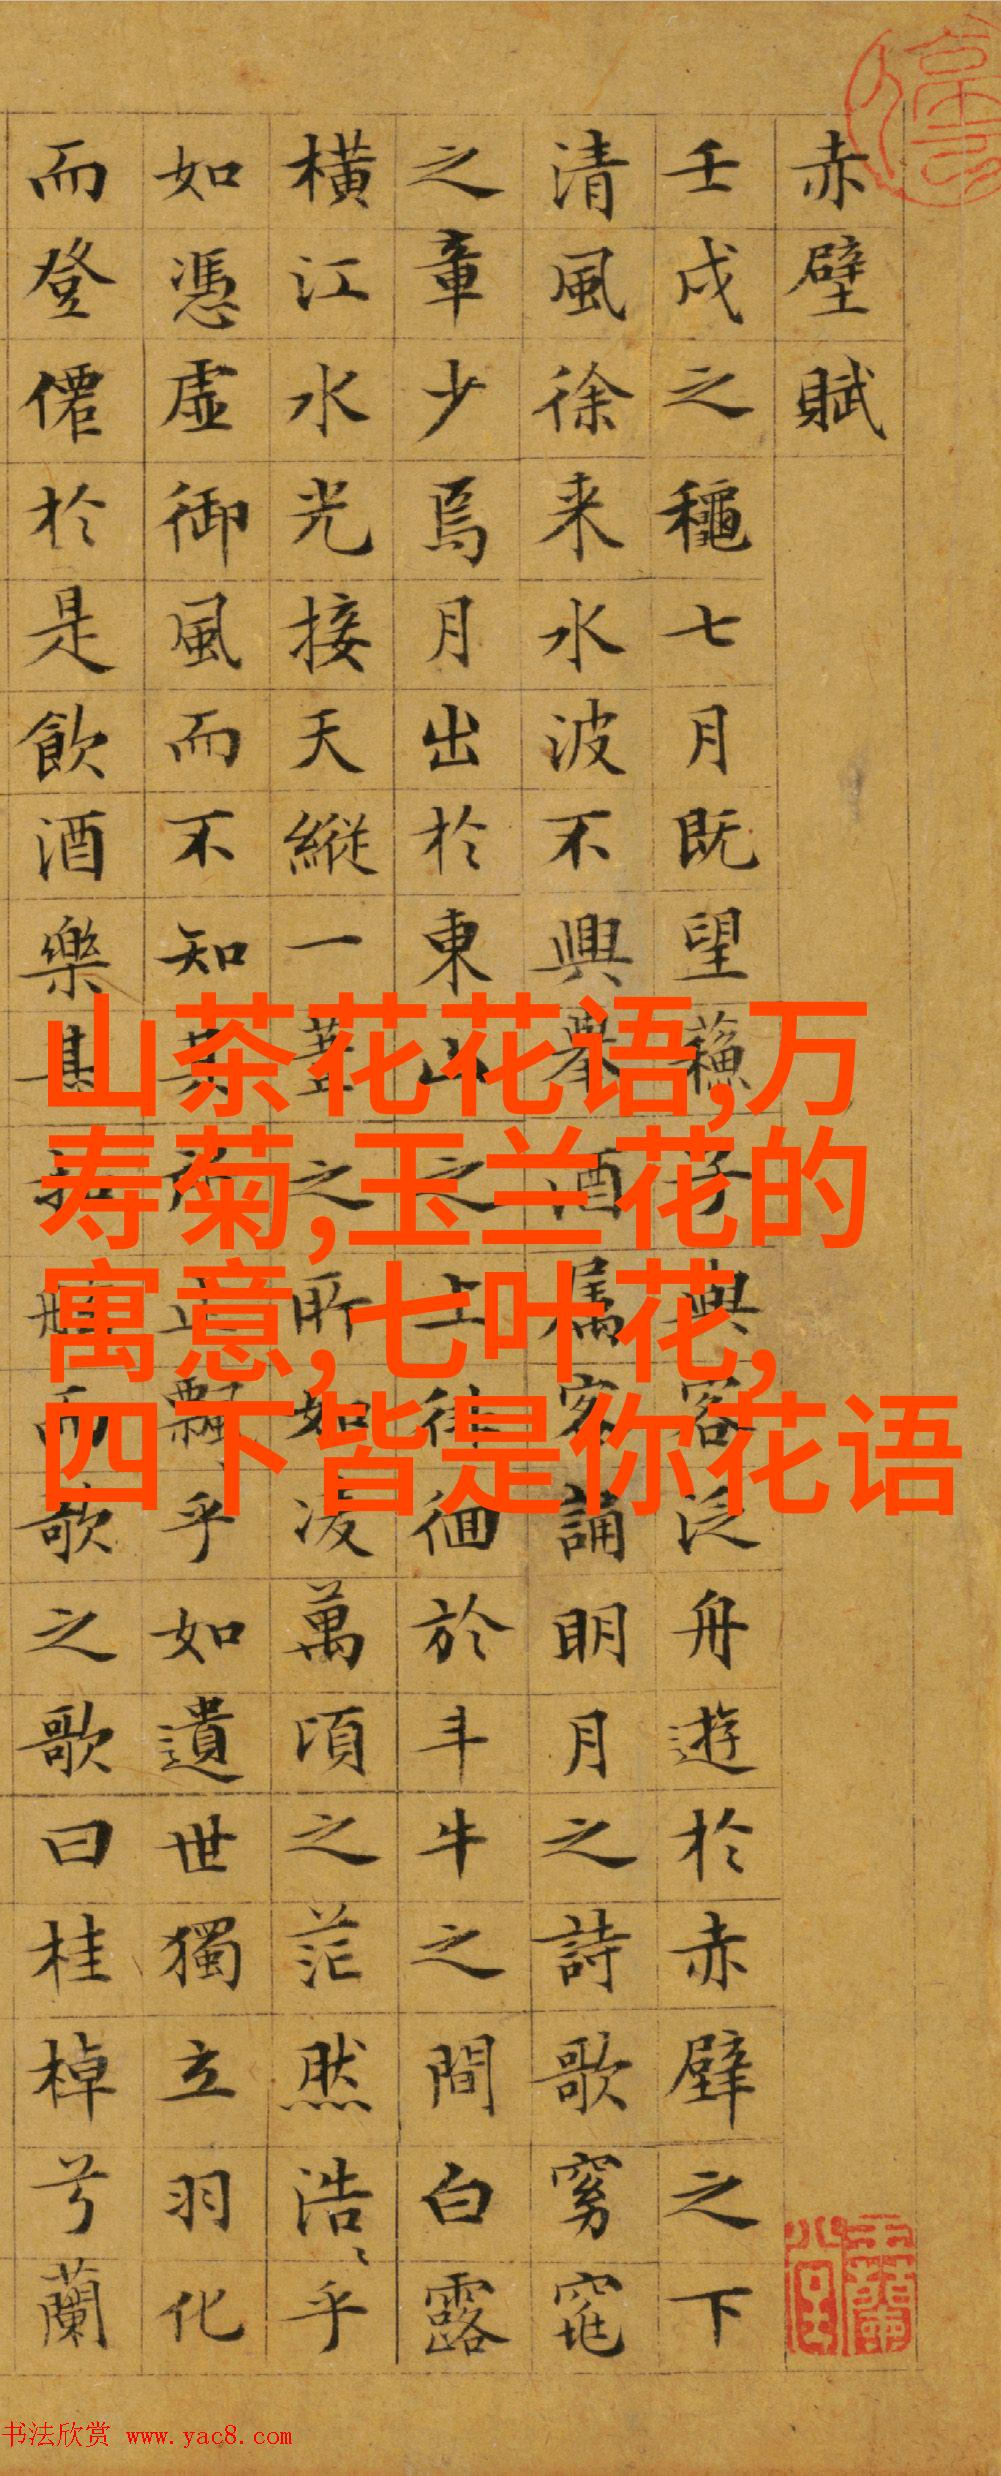 赤壁賦
壬戌之穐七月既望蘓子與客泛舟遊於赤壁之下
清風徐来水波不興舉酒属客誦明月之詩歌窈窕
之章少焉月出於東山之上徘徊於斗牛之間白露
横江水光接天縱一葦之所如凌萬頃之茫然浩〻乎
如憑虚御風而不知其所止飄〻乎如遺世獨立羽化
而登僊於是飲酒樂甚扣舷而歌之歌曰桂棹兮蘭
山茶花花语,万
寿菊,玉兰花的
寓意,七叶花,
四下皆是你花语
书法欣赏 www.yac8.com